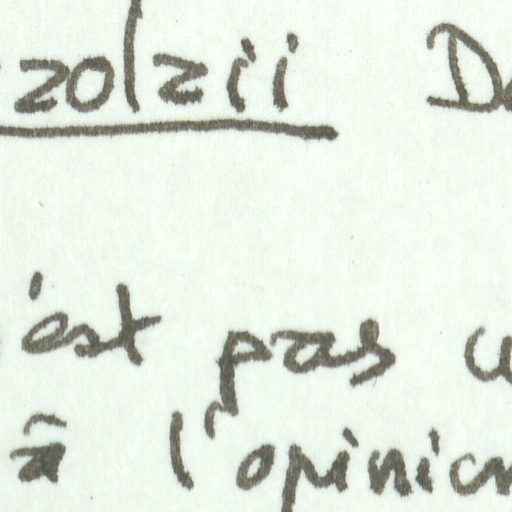 zolzii De
'est pas u
à l'opinion